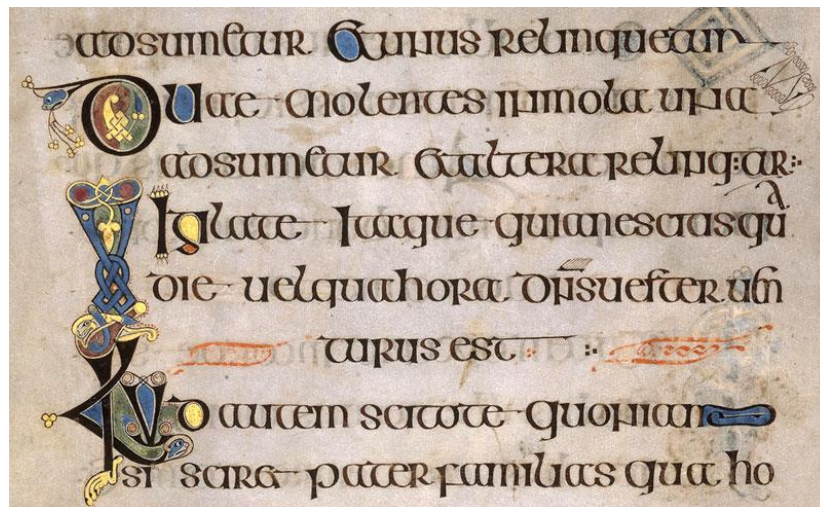 adsumetur. Et unus relinquetur
Duae molentes in mola una
adsumetur. Et altera relinq:ur
Vigilate Itaque quia nescitis qua
die uel qua hora dns uester uen
turus est
Illud autem scitote quoniam
si sciret pater familias qua ho